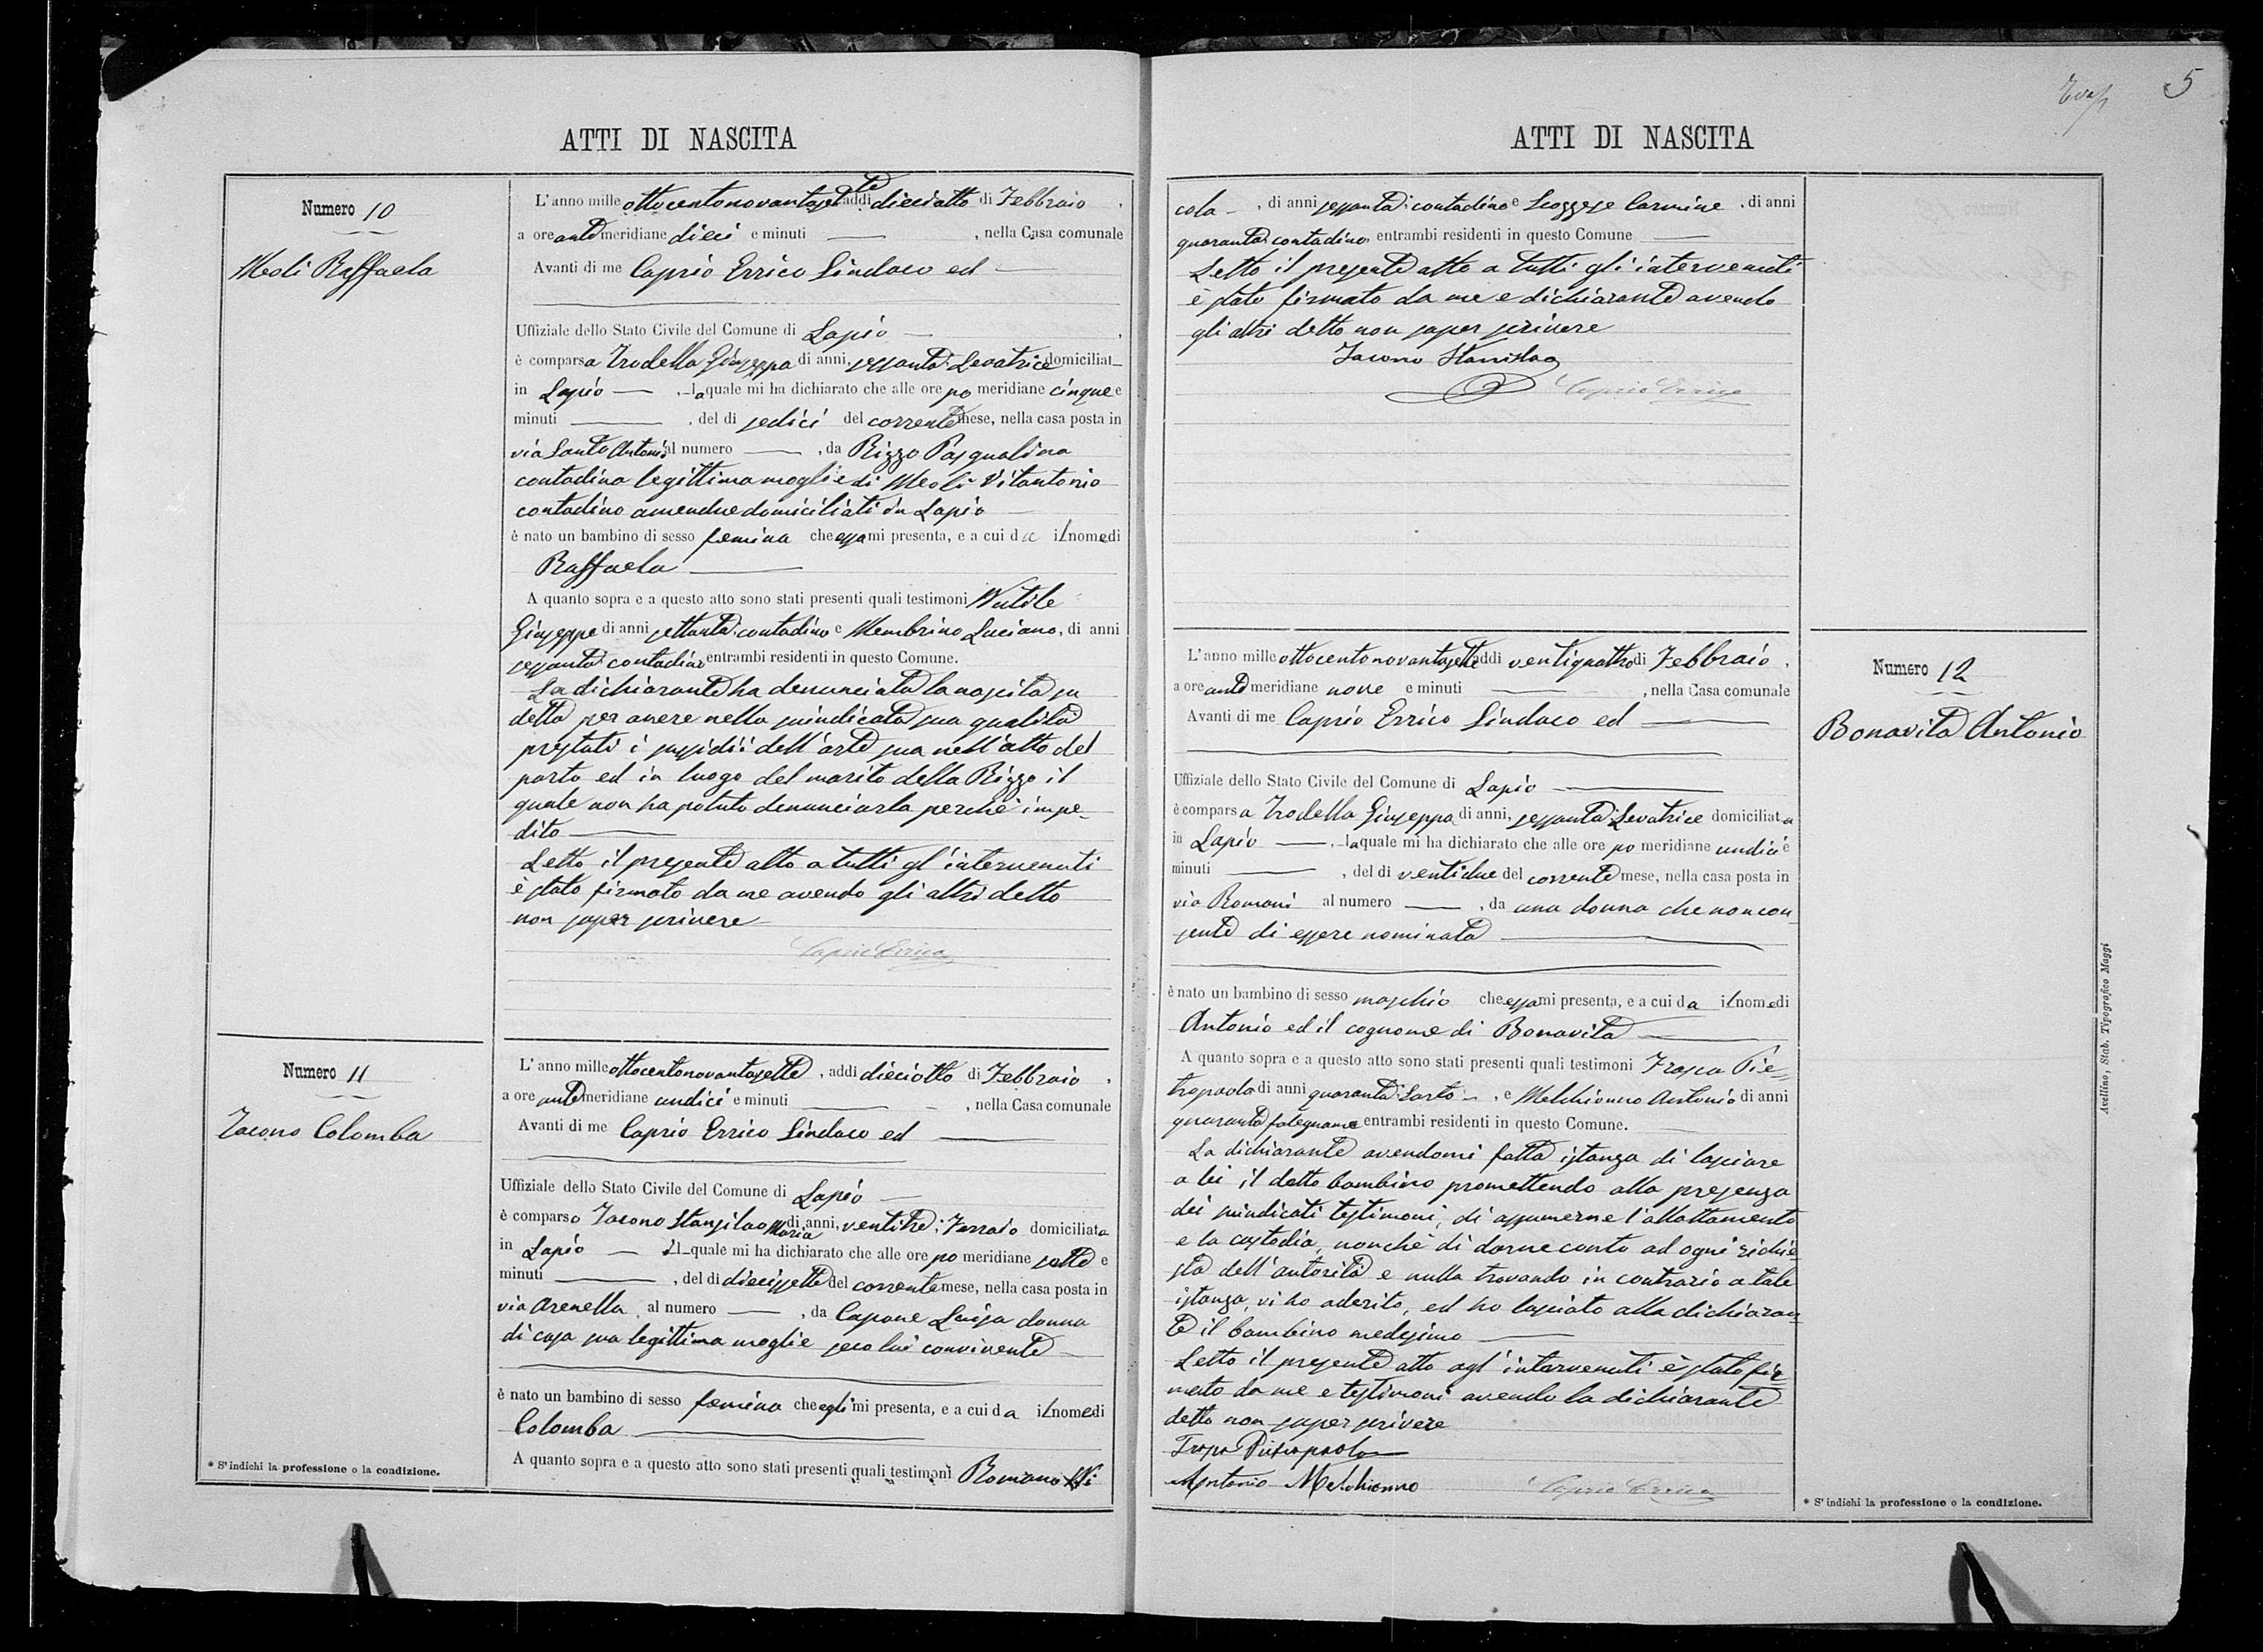 5
ATTI DI NASCITA
Numero 10
Meoli Raffaela
L'anno mille ottocentonovantasette addi dieciotto di Febbraio,
a ore ante meridiane dieci e minuti — , nella Casa comunale
Avanti di me Caprio Errico Sindaco ed —
Uffiziale dello Stato Civile del Comune di Lapio — ,
è comparsa Trodella Giuseppa di anni, sessanta: Levatrice domiciliat
in Lapio — , la quale mi ha dichiarato che alle ore po meridiane cinque e
minuti — , del dì sedici del corrente mese, nella casa posta in
via Santo Antonio al numero — , da Rizzo Pasqualina
contadina legittima moglie di Meoli Vitantonio
contadino amendue domiciliati in Lapio
è nato un bambino di sesso femina che essa mi presenta, e a cui da il nome di
Raffaela —
A quanto sopra e a questo atto sono stati presenti quali testimoni Nutile
Giuseppe di anni settanta: contadino e Membrino Luciano, di anni
sessanta: contadino entrambi residenti in questo Comune.
La dichiarante ha denunciata la nascita su
detta per avere nella suindicata sua qualità
prestati i sussidii dell'arte sua nell'atto del
parto ed in luogo del marito della Rizzo il
quale non ha potuto denunciarla perchè impe-
dito —
Letto il presente atto a tutti gl'intervenuti
è stato firmato da me avendo gli altri detto
non saper scrivere
Caprio Errico
Numero 11
Iacono Colomba
L'anno mille ottocentonovantasette, addi dieciotto di Febbraio,
a ore ante meridiane undici e minuti — , nella Casa comunale
Avanti di me Caprio Errico Sindaco ed —
Uffiziale dello Stato Civile del Comune di Lapio —
è comparso Iacono Stanislao Maria di anni, ventitre: Ferraio domiciliato
in Lapio — Il quale mi ha dichiarato che alle ore po meridiane sette e
minuti — , del dì diecissette del corrente mese, nella casa posta in
via Arenella al numero — , da Capone Luisa donna
di casa sua legittima moglie seco lui convivente
è nato un bambino di sesso femina che egli mi presenta, e a cui da il nome di
Colomba —
A quanto sopra e a questo atto sono stati presenti quali testimoni Romano Ni
* S'indichi la professione o la condizione.
ATTI DI NASCITA
cola — , di anni sessanta: contadino e Scoggese Carmine, di anni
quaranta: contadino entrambi residenti in questo Comune —
Letto il presente atto a tutti gli intervenuti
è stato firmato da me e dichiarante avendo
gli altri detto non saper scrivere
Iacono Stanislao
Caprio Errico
Numero 12
Bonavita Antonio
L'anno mille ottocentonovantasette addi ventiquattro di Febbraio,
a ore ante meridiane nove e minuti — , nella Casa comunale
Avanti di me Caprio Errico Sindaco ed —
Uffiziale dello Stato Civile del Comune di Lapio —
è comparsa Trodella Giuseppa di anni, sessanta: Levatrice domiciliata
in Lapio — , la quale mi ha dichiarato che alle ore po meridiane undici e
minuti — , del dì ventidue del corrente mese, nella casa posta in
via Romani al numero — , da una donna che non con-
sente di essere nominata —
è nato un bambino di sesso maschio che essa mi presenta, e a cui da il nome di
Antonio ed il cognome di Bonavita —
A quanto sopra e a questo atto sono stati presenti quali testimoni Pie-
tropaolo di anni quaranta: Sarto — , e Melchionno Antonio di anni
quaranta falegname entrambi residenti in questo Comune.
La dichiarante avendomi fatta istanza di lasciare
a lei il detto bambino promettendo alla presenza
dei suindicati testimoni, di assumerne l'allattamento
e la custodia, nonchè di darne conto ad ogni richie
sta dell'autorità e nulla trovando in contrario a tale
istanza, vi ho aderito, ed ho lasciato alla dichiaran-
te il bambino medesimo —
Letto il presente atto agl'intervenuti è stato fir-
mato da me e testimoni avendo la dichiarante
detto non saper scrivere
Pietropaolo
Antonio Melchionno
Caprio Errico
* S'indichi la professione o la condizione.
Avellino, Stab. Tipografico Maggi